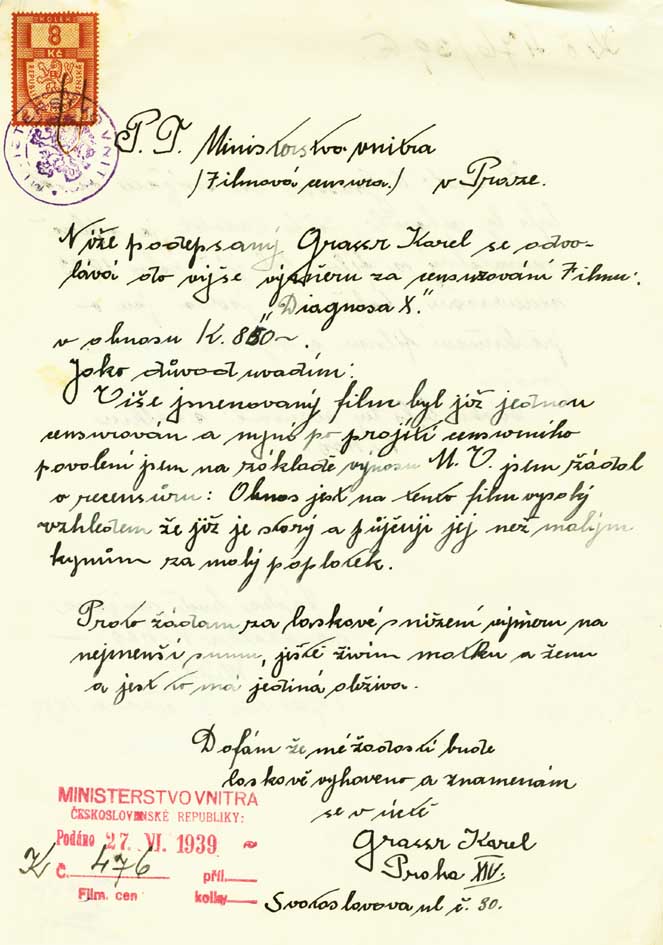 KOLEK
8
Kč
K č 476/39 6
P. T. Ministerstvo vnitra
/Filmová censura./ v Praze.
Níže podepsaný Grassr Karel se odvo-
lává do výše výměru za censurování Filmu:
"Diagnosa X."
v obnosu K. 850~.
Jako důvod uvadím:
Více jmenovaný film byl již jednou
censurován a nyní po projití censurního
povolení jsem na základě výnosu M. V. jsem žádal
o recensuru: Obnos jest na tento film vysoký
vzhledem že již je starý a půjčuji jej než malým
kynům za malý poplatek.
Proto žádam za laskavé snížení výměru na
nejmenší sumu, ještě živim matku a ženu
a jest to má jediná obživa.
Dofám že mé žadosti bude
laskavě vyhaveno a znamenám
se v úctě
Grassr Karel
Praha XIV.
Svatoslavova ul č. 30.
MINISTERSTVO VNITRA
ČESKOSLOVENSKÉ REPUBLIKY:
Podáno 27. VI. 1939
K Č. 476 příl.
Film. cen kolky